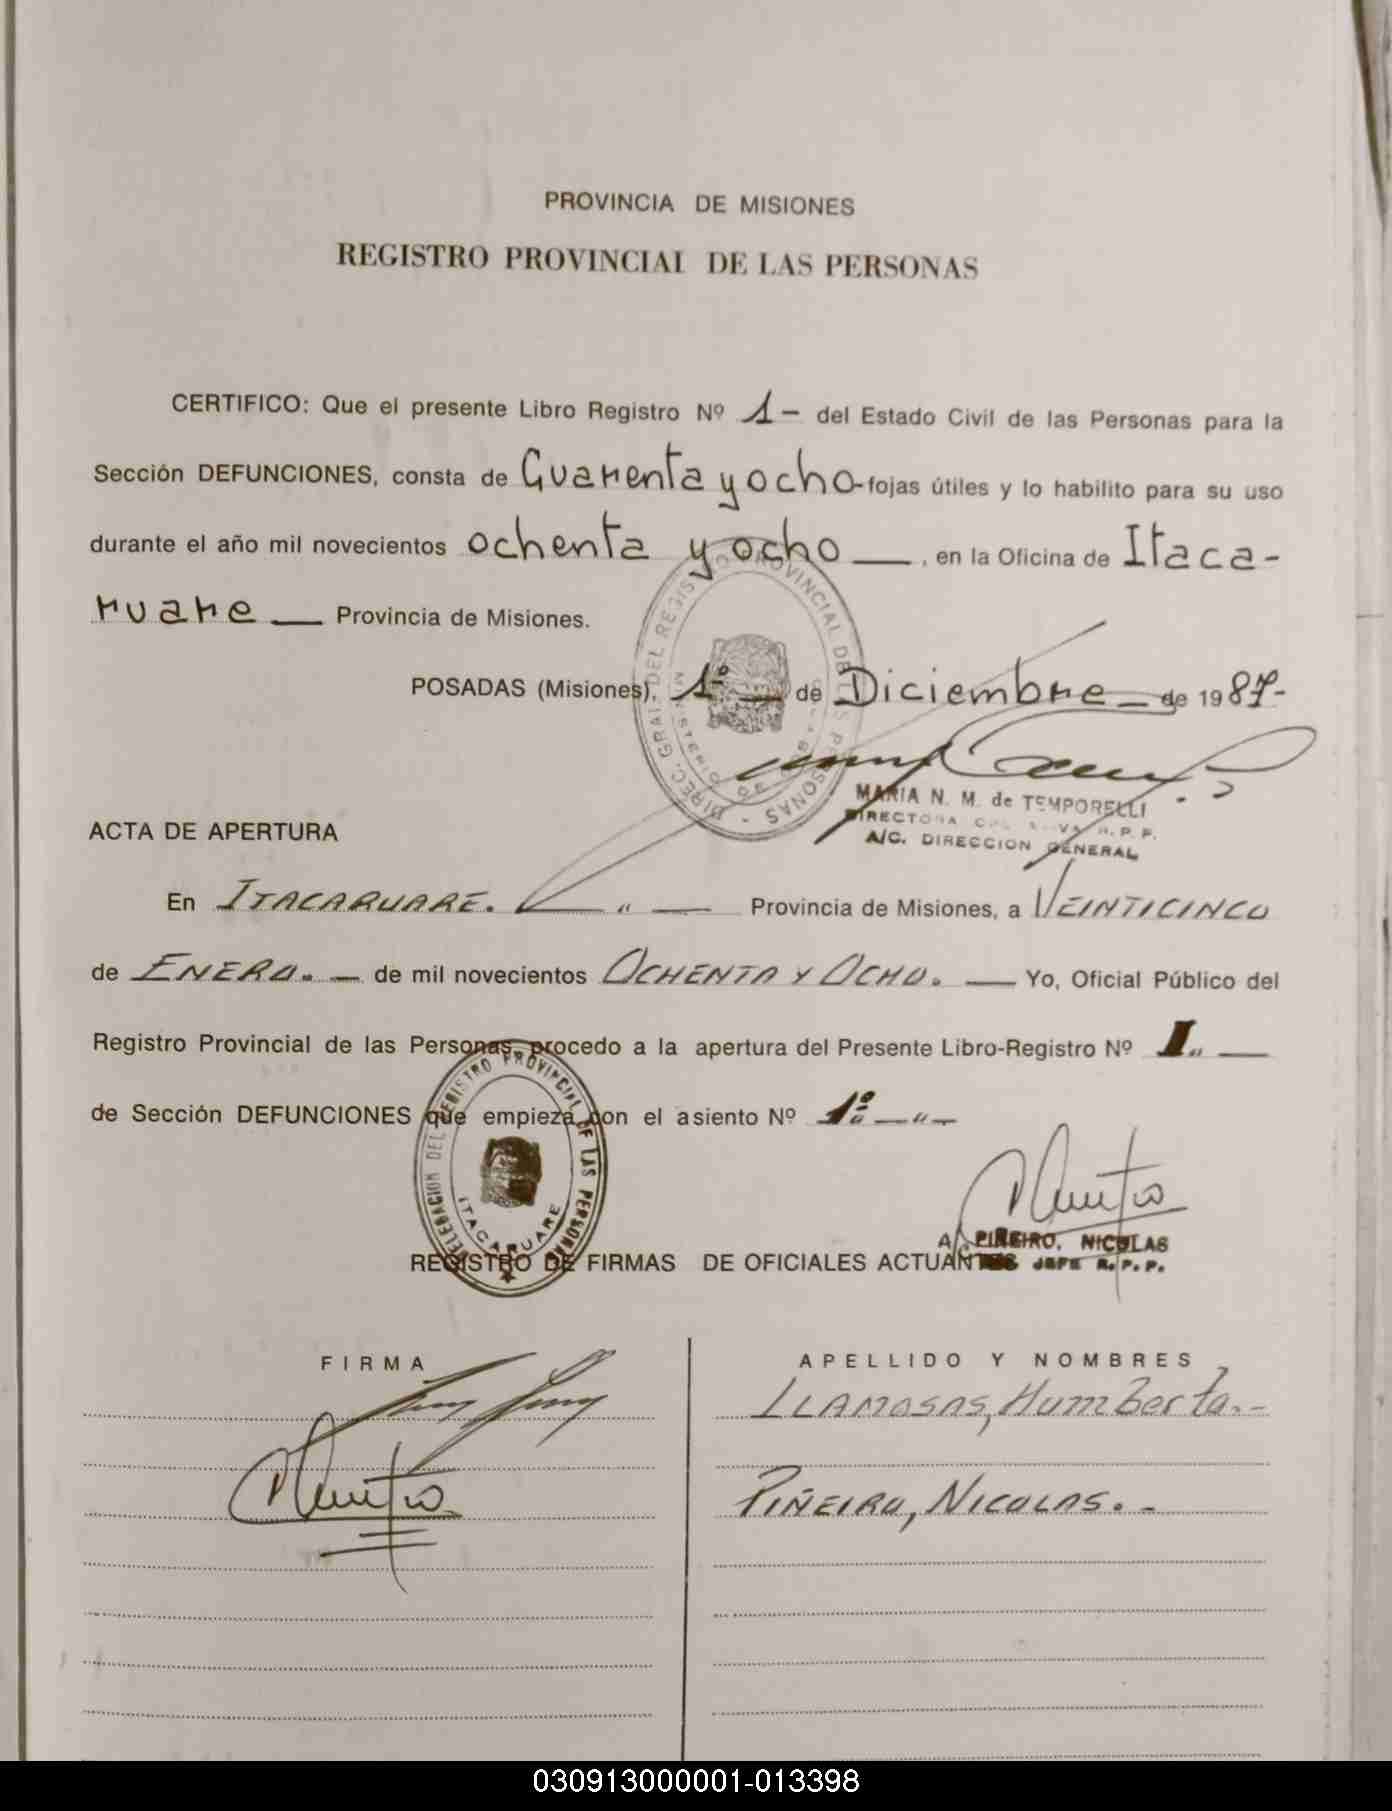 PROVINCIA DE MISIONES
REGISTRO PROVINCIAL DE LAS PERSONAS
CERTIFICO: Que el presente Libro Registro Nº 1- del Estado Civil de las Personas para la
Sección DEFUNCIONES, consta de Cuarenta y ocho- fojas útiles y lo habilito para su uso
durante el año mil novecientos ochenta y ocho —, en la Oficina de Itaca-
ruare — Provincia de Misiones.
POSADAS (Misiones), 1º — de Diciembre — de 1987-
DIREC. GRAL. DEL REGISTRO PROVINCIAL DE LAS PERSONAS -
MINISTERIO DE GOB
MARIA N. M. de TEMPORELLI
DIRECTORA R. P. P.
A/C. DIRECCION GENERAL
ACTA DE APERTURA
En ITACARUARE. — " — Provincia de Misiones, a VEINTICINCO
de ENERO. — de mil novecientos OCHENTA Y OCHO. — Yo, Oficial Público del
Registro Provincial de las Personas, procedo a la apertura del Presente Libro-Registro Nº I." —
de Sección DEFUNCIONES que empieza con el asiento Nº 1º — " —
DELEGACION DEL REGISTRO PROVINCIAL DE LAS PERSONAS
ITACARUARE
A. PIÑEIRO, NICOLAS
JEFE R. P. P.
REGISTRO DE FIRMAS DE OFICIALES ACTUANTES
FIRMA APELLIDO Y NOMBRES
LLAMOSAS, Humberto.-
PIÑEIRO, NICOLAS. -
030913000001-013398